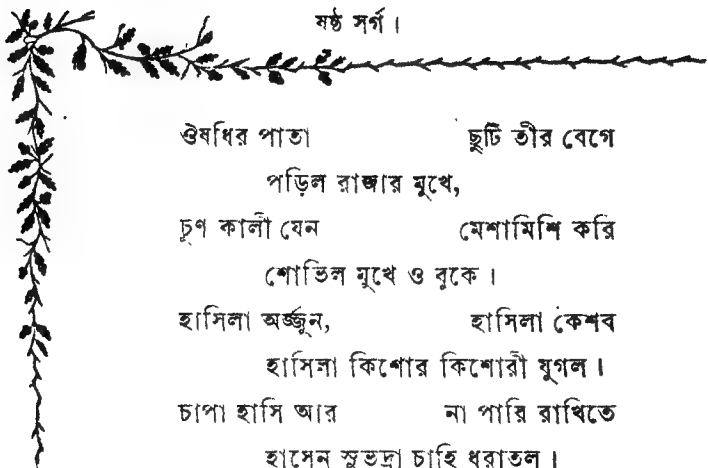 ষষ্ঠ সর্গ।
ঔষধির পাতা ছুটি তীর বেগে
পড়িল রাজার মুখে,
চূণ কালী যেন মেশামিশি করি
শোভিল মুখে ও বুকে।
হাসিলা অর্জ্জুন, হাসিলা কেশব
হাসিলা কিশোর কিশোরী যুগল।
চাপা হাসি আর না পারি রাখিতে
হাসেন সুভদ্রা চাহি ধরাতল।